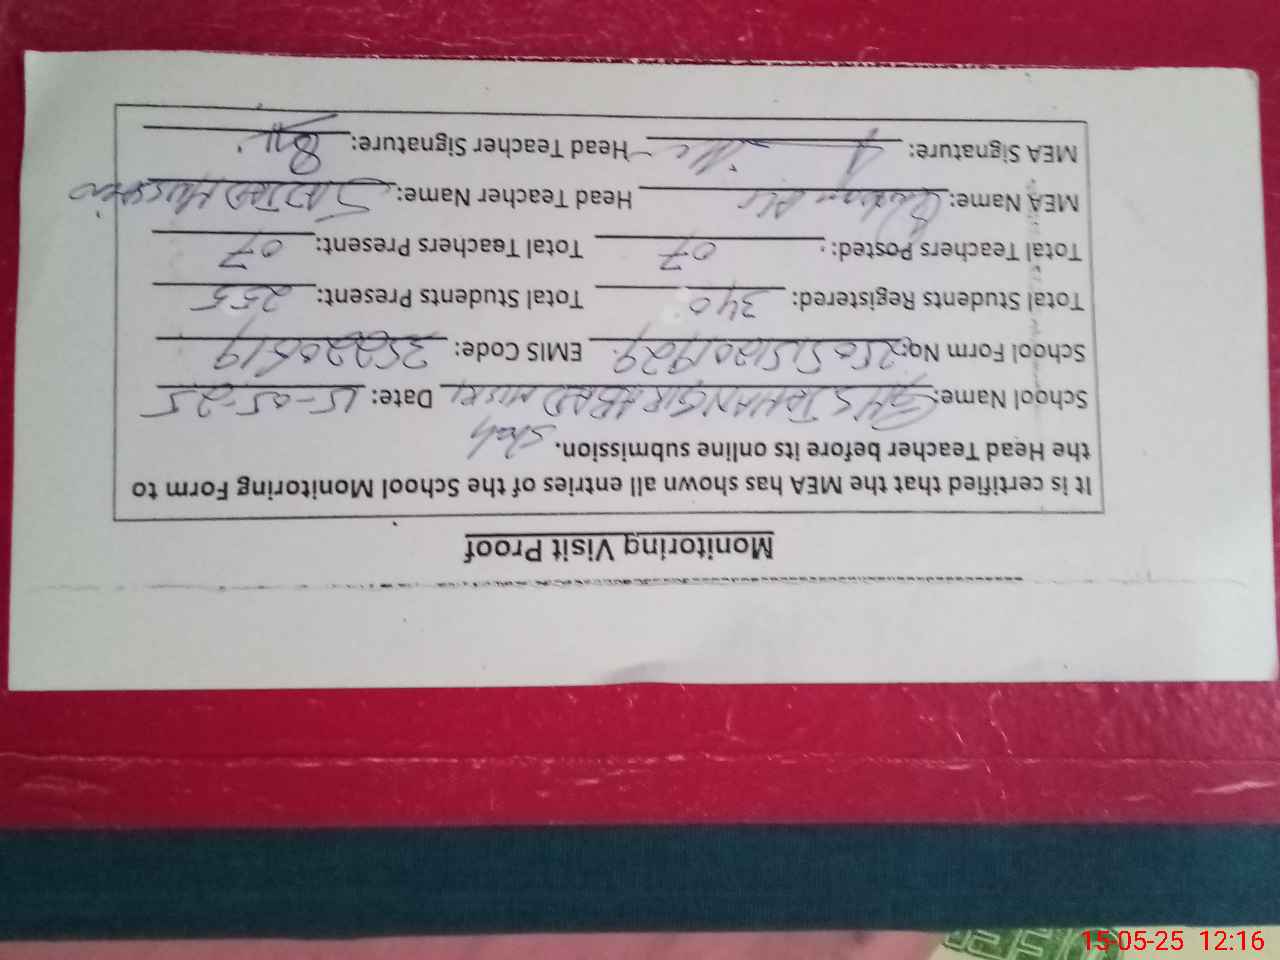 Monitoring Visit Proof
It is certified that the MEA has shown all entries of the School Monitoring Form to
the Head Teacher before its online submission. Shah
School Name: JAHANGIRABAD Date: 15-05-25
School Form No: EMIS Code:
Total Students Registered: 340 Total Students Present: 255
Total Teachers Posted: 07 Total Teachers Present: 07
MEA Name: Head Teacher Name: SAJJAD Hussain
MEA Signature: Head Teacher Signature:
15-05-25 12:16